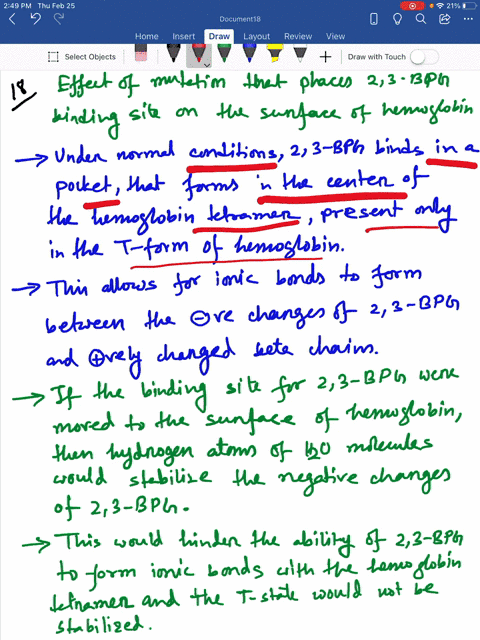 2:49 PM Thu Feb 25
21%
Document18
Home Insert Draw Layout Review View
Select Objects
Draw with Touch
18 Effect of mutation that places 2,3-BPG
binding site on the surface of hemoglobin
→ Under normal conditions, 2,3-BPG binds in a
pocket, that forms in the center of
the hemoglobin tetramer, present only
in the T-form of hemoglobin.
→ This allows for ionic bonds to form
between the ⊖ve charges of 2,3-BPG
and ⊕vely charged beta chains.
→ If the binding site for 2,3-BPG were
moved to the surface of hemoglobin,
then hydrogen atoms of H2O molecules
would stabilize the negative charges
of 2,3-BPG.
→ This would hinder the ability of 2,3-BPG
to form ionic bonds with the hemoglobin
tetramer and the T-state would not be
stabilized.